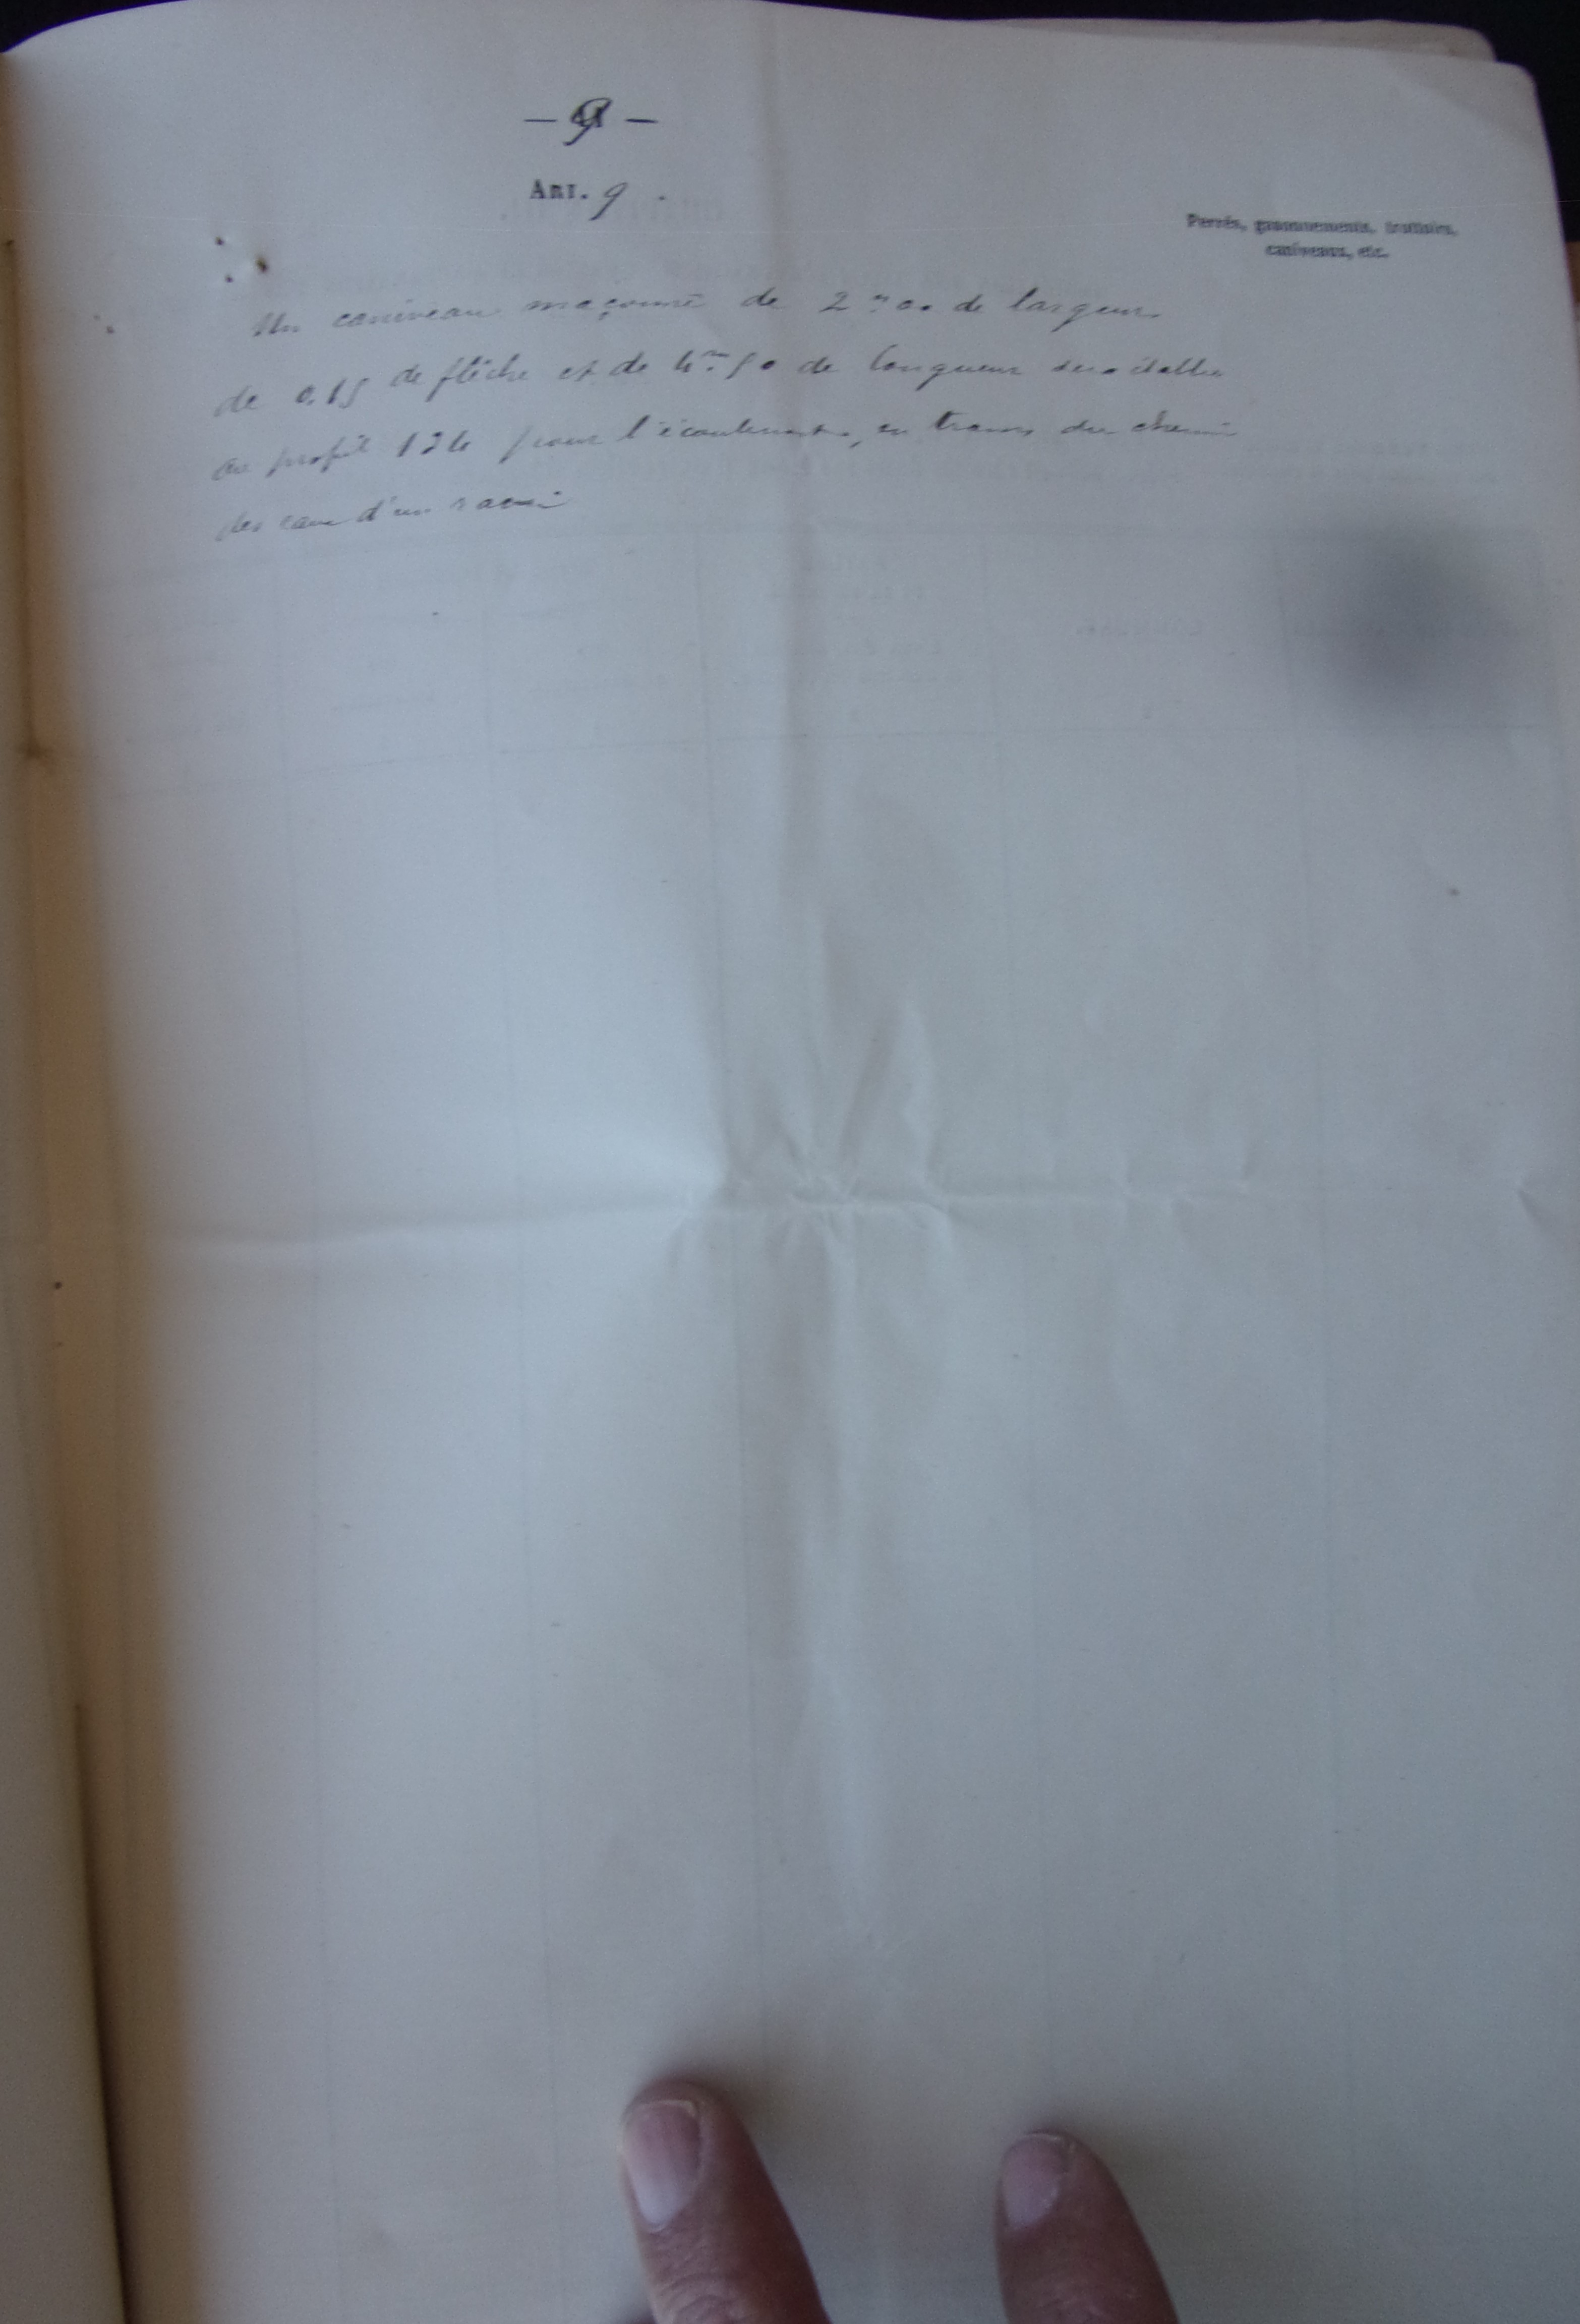 — 9 —
Art. 9.
Perrés, gazonnements, trottoirs,
caniveaux, etc.
Un caniveau maçonné de 2m00 de largeur
de 0.15 de flèche et de 4m50 de longueur sera établi
au profil 124 pour l'écoulement, en travers du chemin
des eaux d'un ravin